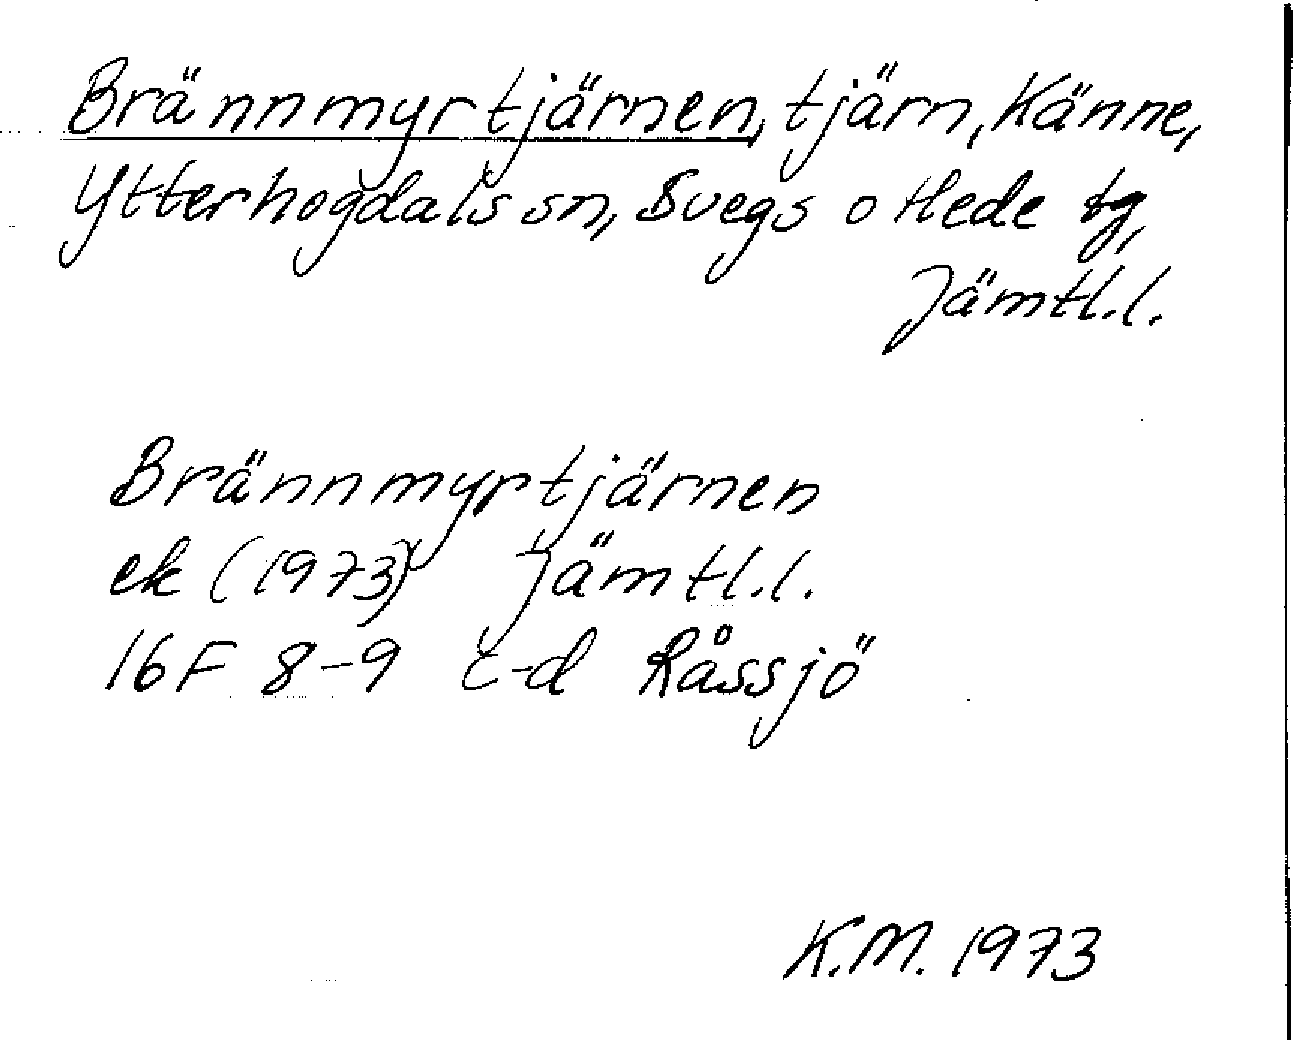 Brännmyrtjärnen, tjärn, Känne,
Ytterhogdals sn, Svegs o Hede tg,
Jämtl.l.
Brännmyrtjärnen
ek (1973) Jämtl.l.
16F 8-9 c-d Råssjö
K.M. 1973